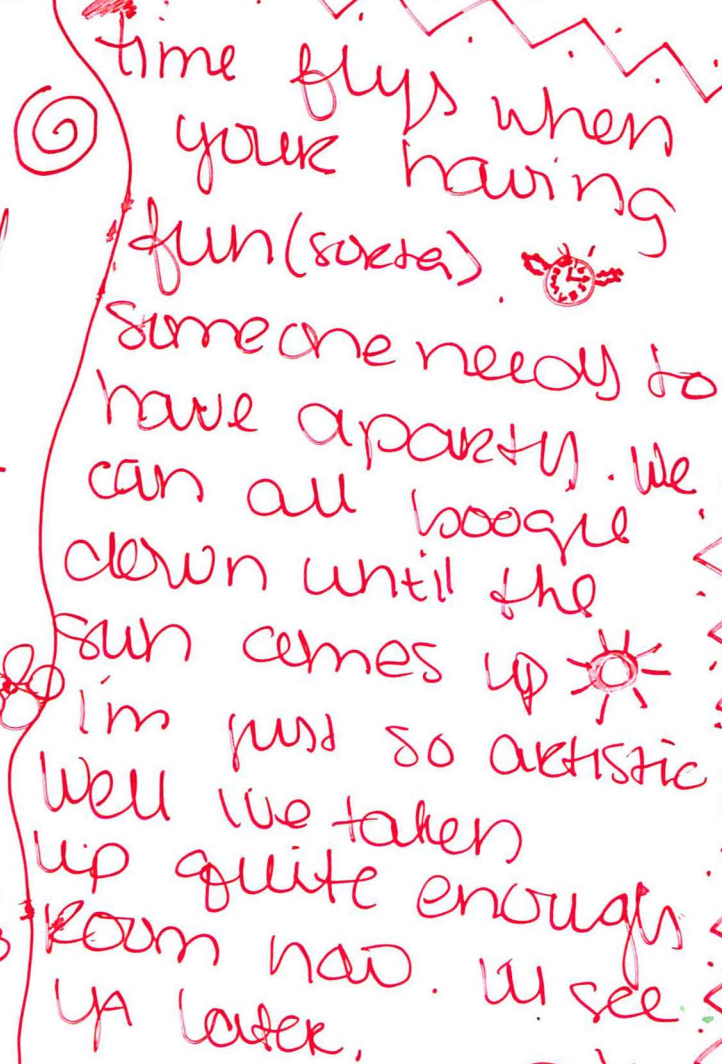 time flys when
your having
fun (sorta).
Someone needs to
have a party. We
can all boogie
down until the
sun comes up
i'm just so artistic
Well I've taken
up quite enough
Room now. I'll see
YA later.